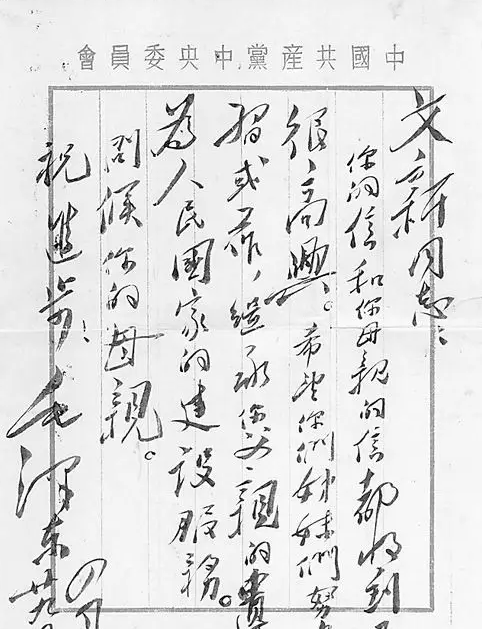 中國共產黨中央委員會
文新同志：
你的信和你母親的信都收到
很高興。希望你們姊妹們努
習或工作，繼承你父親的遺
為人民國家的建設服務。
問候你的母親。
祝進步！
毛澤東
四月
廿九